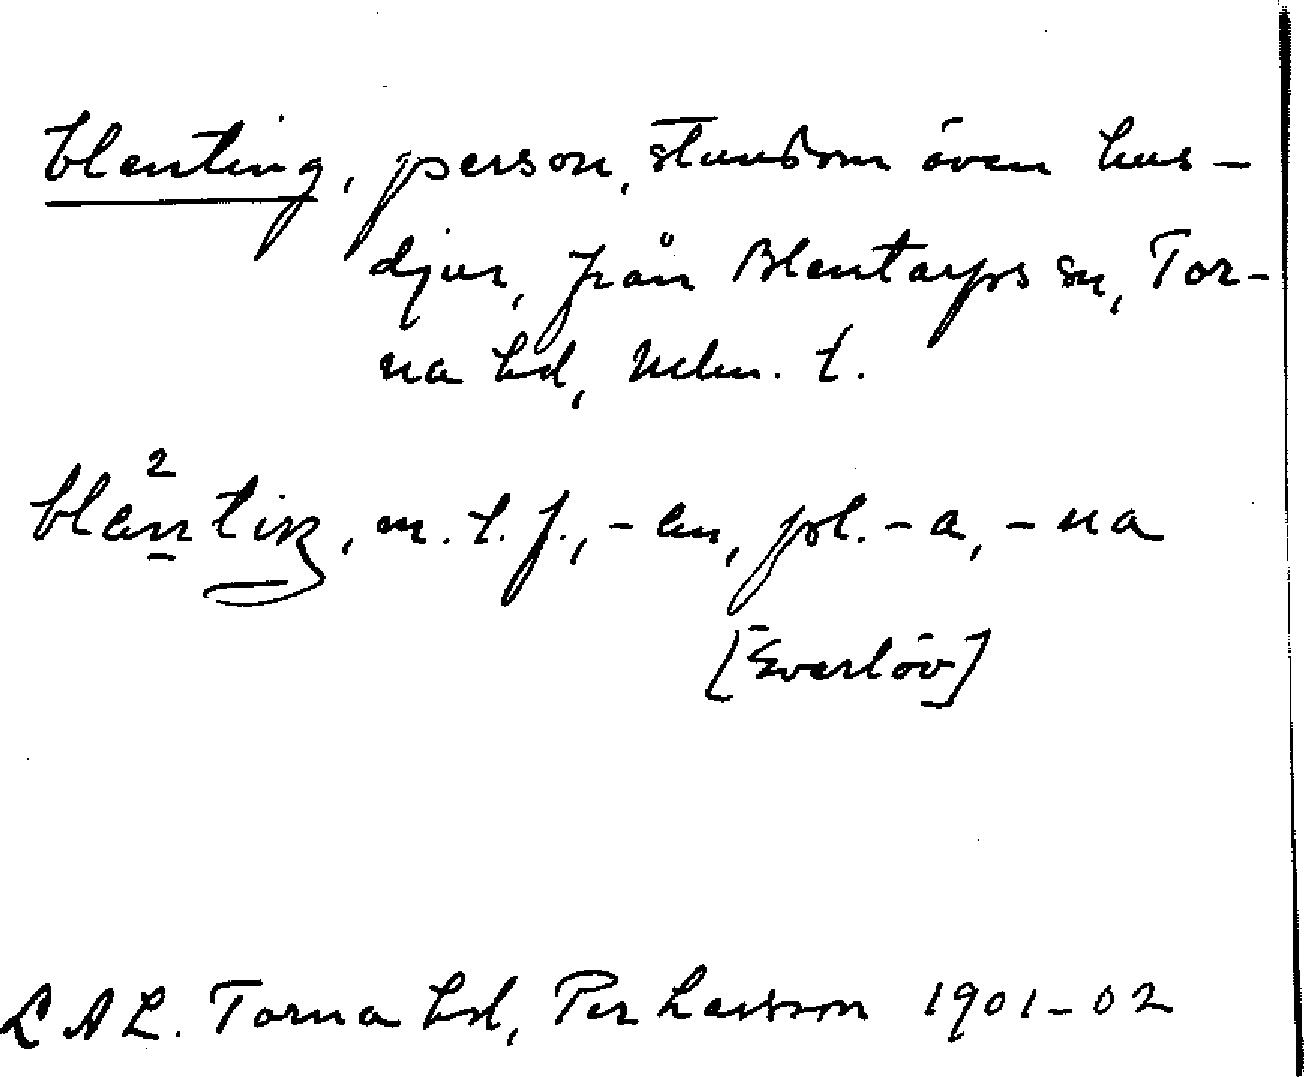 blenting, person, stundom även hus-
djur, från Blentarps sn, Tor-
na hd, Mlm. l.
2
bläntiŋ, m. l. f., -en, pl. -a, -na
[Everlöv]
L A L. Torna hd, Per Larsson 1901-02